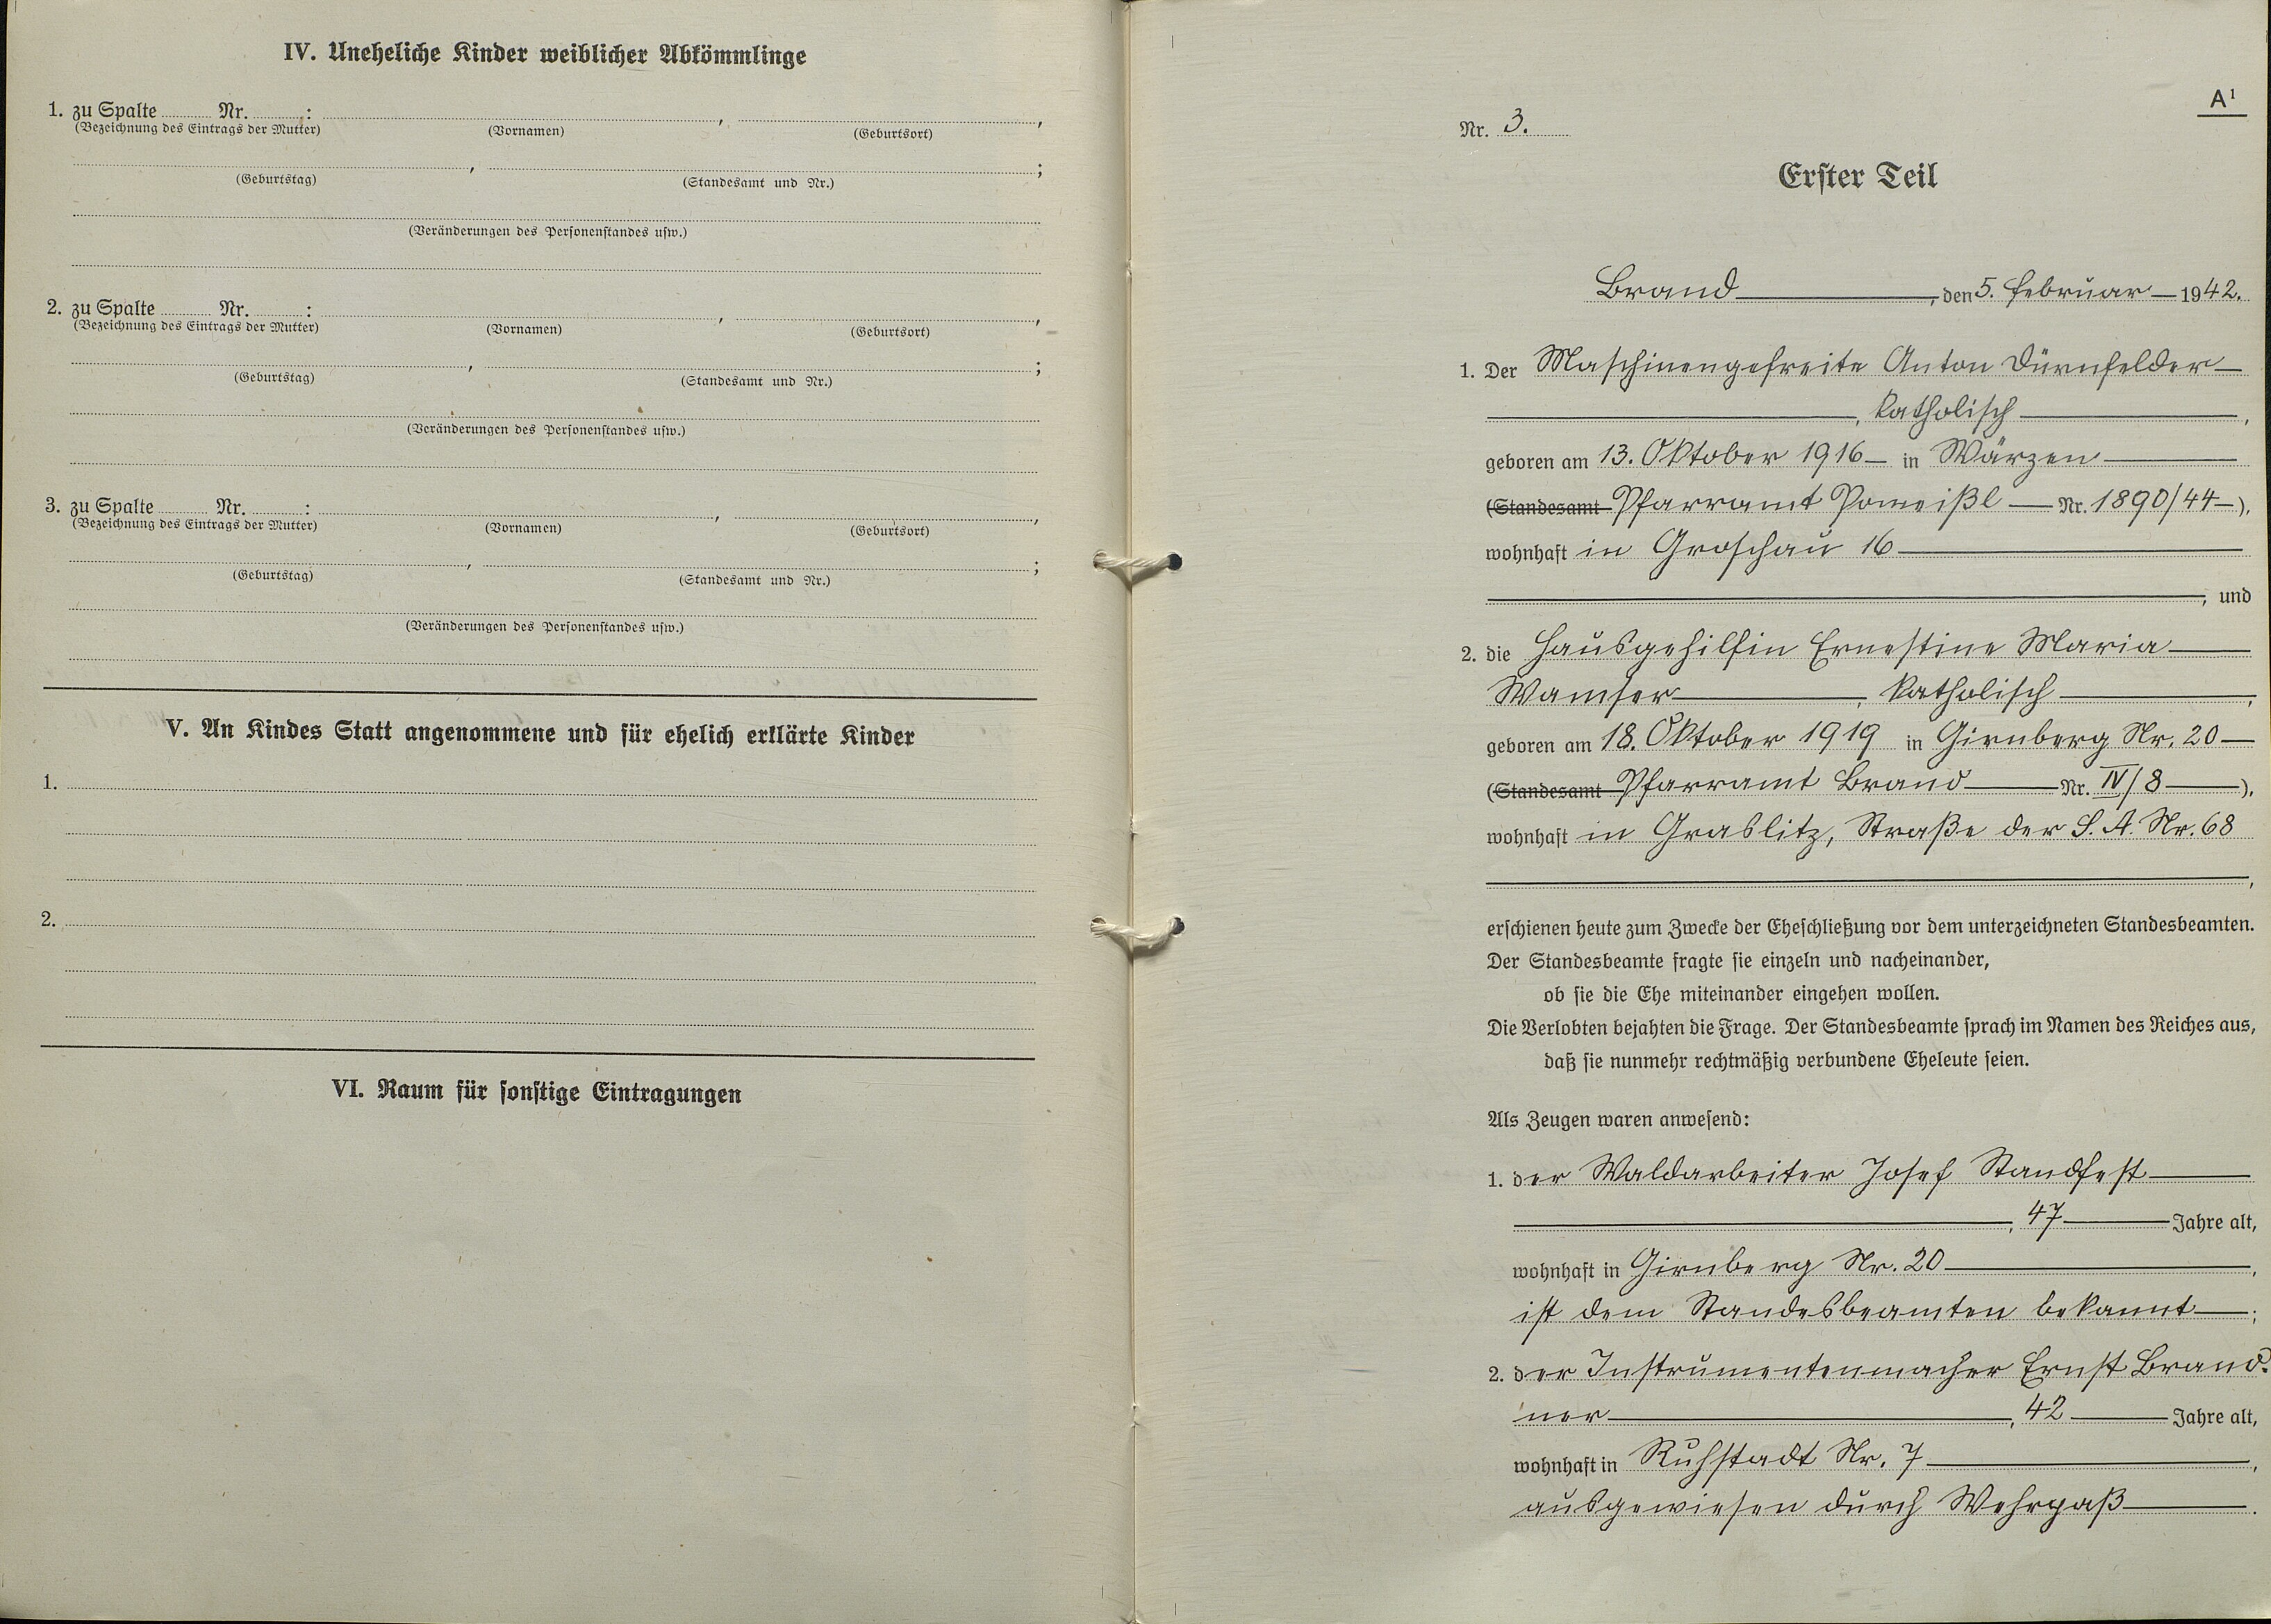 IV. Uneheliche Kinder weiblicher Abkömmlinge
1. zu Spalte Nr. : , ,
(Bezeichnung des Eintrags der Mutter) (Vornamen) (Geburtsort)
, ;
(Geburtstag) (Standesamt und Nr.)
(Veränderungen des Personenstandes usw.)
2. zu Spalte Nr. : , ,
(Bezeichnung des Eintrags der Mutter) (Vornamen) (Geburtsort)
, ;
(Geburtstag) (Standesamt und Nr.)
(Veränderungen des Personenstandes usw.)
3. zu Spalte Nr. : , ,
(Bezeichnung des Eintrags der Mutter) (Vornamen) (Geburtsort)
, ;
(Geburtstag) (Standesamt und Nr.)
(Veränderungen des Personenstandes usw.)
V. An Kindes Statt angenommene und für ehelich erklärte Kinder
1.
2.
VI. Raum für sonstige Eintragungen
A¹
Nr. 3.
Erster Teil
Brand, den 5. Februar 1942.
1. Der Maschinengefreite Anton Dürnfelder
, katholisch,
geboren am 13. Oktober 1916 in Wärzen
(Standesamt Pfarramt Pomeißl Nr. 1890/44),
wohnhaft in Groschau 16
, und
2. die Hausgehilfin Ernestine Maria
Wamser, katholisch,
geboren am 18. Oktober 1919 in Girnberg Nr. 20
(Standesamt Pfarramt Brand Nr. IV/8),
wohnhaft in Graslitz, Straße der S. A. Nr. 68
,
erschienen heute zum Zwecke der Eheschließung vor dem unterzeichneten Standesbeamten.
Der Standesbeamte fragte sie einzeln und nacheinander,
ob sie die Ehe miteinander eingehen wollen.
Die Verlobten bejahten die Frage. Der Standesbeamte sprach im Namen des Reiches aus,
daß sie nunmehr rechtmäßig verbundene Eheleute seien.
Als Zeugen waren anwesend:
1. der Waldarbeiter Josef Standfest
, 47 Jahre alt,
wohnhaft in Girnberg Nr. 20,
ist dem Standesbeamten bekannt;
2. der Instrumentenmacher Ernst Brand-
ner, 42 Jahre alt,
wohnhaft in Ruhstadt Nr. 7,
ausgewiesen durch Wehrpaß.